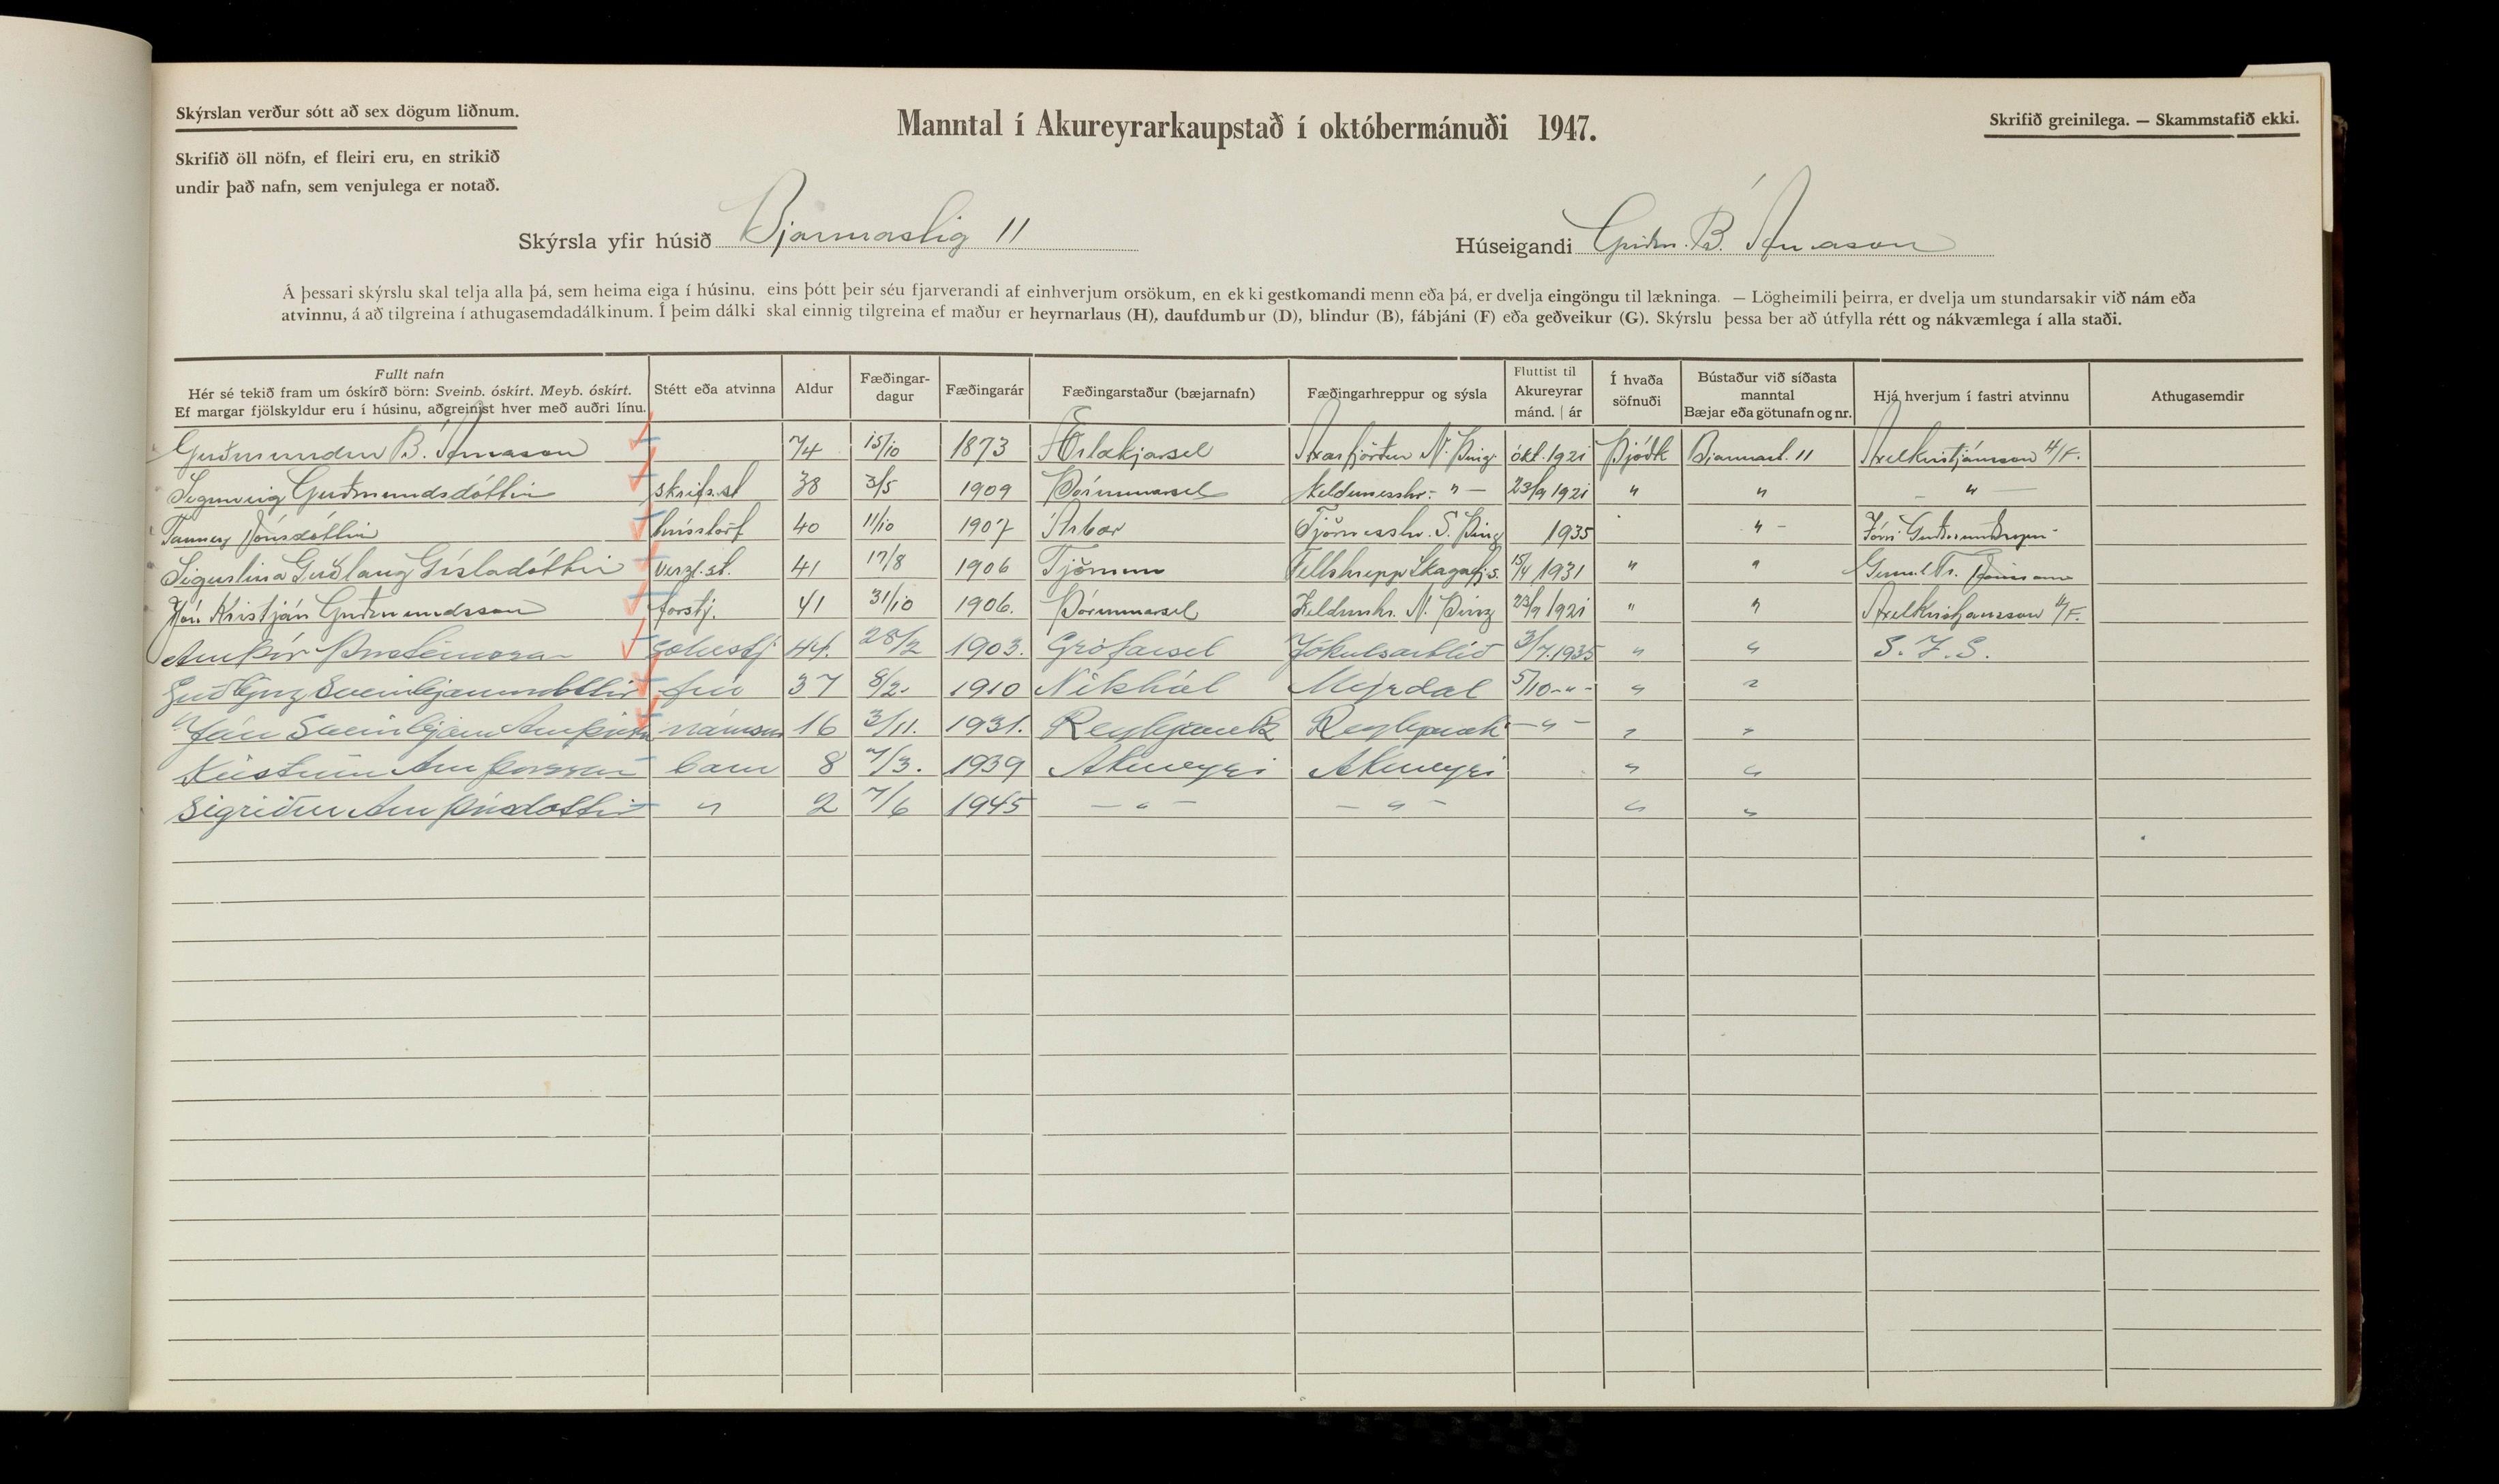 Skýrslan verður sótt að sex dögum liðnum.
Manntal í Akureyrarkaupstað í októbermánuði 1947.
Skrifið greinilega. — Skammstafið ekki.
Skrifið öll nöfn, ef fleiri eru, en strikið
undir það nafn, sem venjulega er notað.
Skýrsla yfir húsið Bjarmastig 11
Húseigandi Guðm. B. Árnason
Á þessari skýrslu skal telja alla þá, sem heima eiga í húsinu, eins þótt þeir séu fjarverandi af einhverjum orsökum, en ekki gestkomandi menn eða þá, er dvelja eingöngu til lækninga. — Lögheimili þeirra, er dvelja um stundarsakir við nám eða
atvinnu, á að tilgreina í athugasemdadálkinum. Í þeim dálki skal einnig tilgreina ef maður er heyrnarlaus (H), daufdumbur (D), blindur (B), fábjáni (F) eða geðveikur (G). Skýrslu þessa ber að útfylla rétt og nákvæmlega í alla staði.
Fullt nafn
Hér sé tekið fram um óskírð börn: Sveinb. óskírt. Meyb. óskírt.
Ef margar fjölskyldur eru í húsinu, aðgreinist hver með auðri línu.
Stétt eða atvinna
Aldur
Fæðingar-
dagur
Fæðingarár
Fæðingarstaður (bæjarnafn)
Fæðingarhreppur og sýsla
Fluttist til
Akureyrar
mánd. | ár
Í hvaða
söfnuði
Bústaður við síðasta
manntal
Bæjar eða götunafn og nr.
Hjá hverjum í fastri atvinnu
Athugasemdir
Guðmundur B. Árnason 74 15/10 1873 Axarfjörður N. Þing. okt. 1921 Þjóðk Bjarmast. 11 Axel Kristjánsson H/F.
Sigurveig Guðmundsdóttir skrifs.st 38 3/5 1909 Þórunnarsel Keldunesshr. " — 23/9 1921 " " — " —
Jónsdóttir hússtörf 40 11/10 1907 Tjörnesshr. S. Þing 1935 " - Jóni Guðmundssyni
Sigurlina Guðlaug Gísladóttir Verzl.st. 41 17/8 1906 Tjörnum Fellshrepp Skagafj.s. 15/4 1931 " "
Jón Kristján Guðmundsson forstj. 41 31/10 1906. Þórunnarsel Keldunhr. N. Þing 23/9 1921 " " Axel Kristjánsson H/F.
Arnþór Þorsteinsson 44. 28/2 1903. Grófarsel Jökulsárhlíð 3/7. 1935 " " S. Í. S.
Guðbjörg Sveinbjarnardóttir frú 37 8/2. 1910 Nikhól Mýrdal 5/10 - " - " "
Jón Sveinbjörn Arnþórsson námsm 16 3/11. 1931. Reykjavík Reykjavík - " - " "
Kristinn Arnþórsson barn 8 7/3. 1939 Akureyri Akureyri " "
Sigríður Arnþórsdóttir " 2 7/6 1945 — " — — " — " "